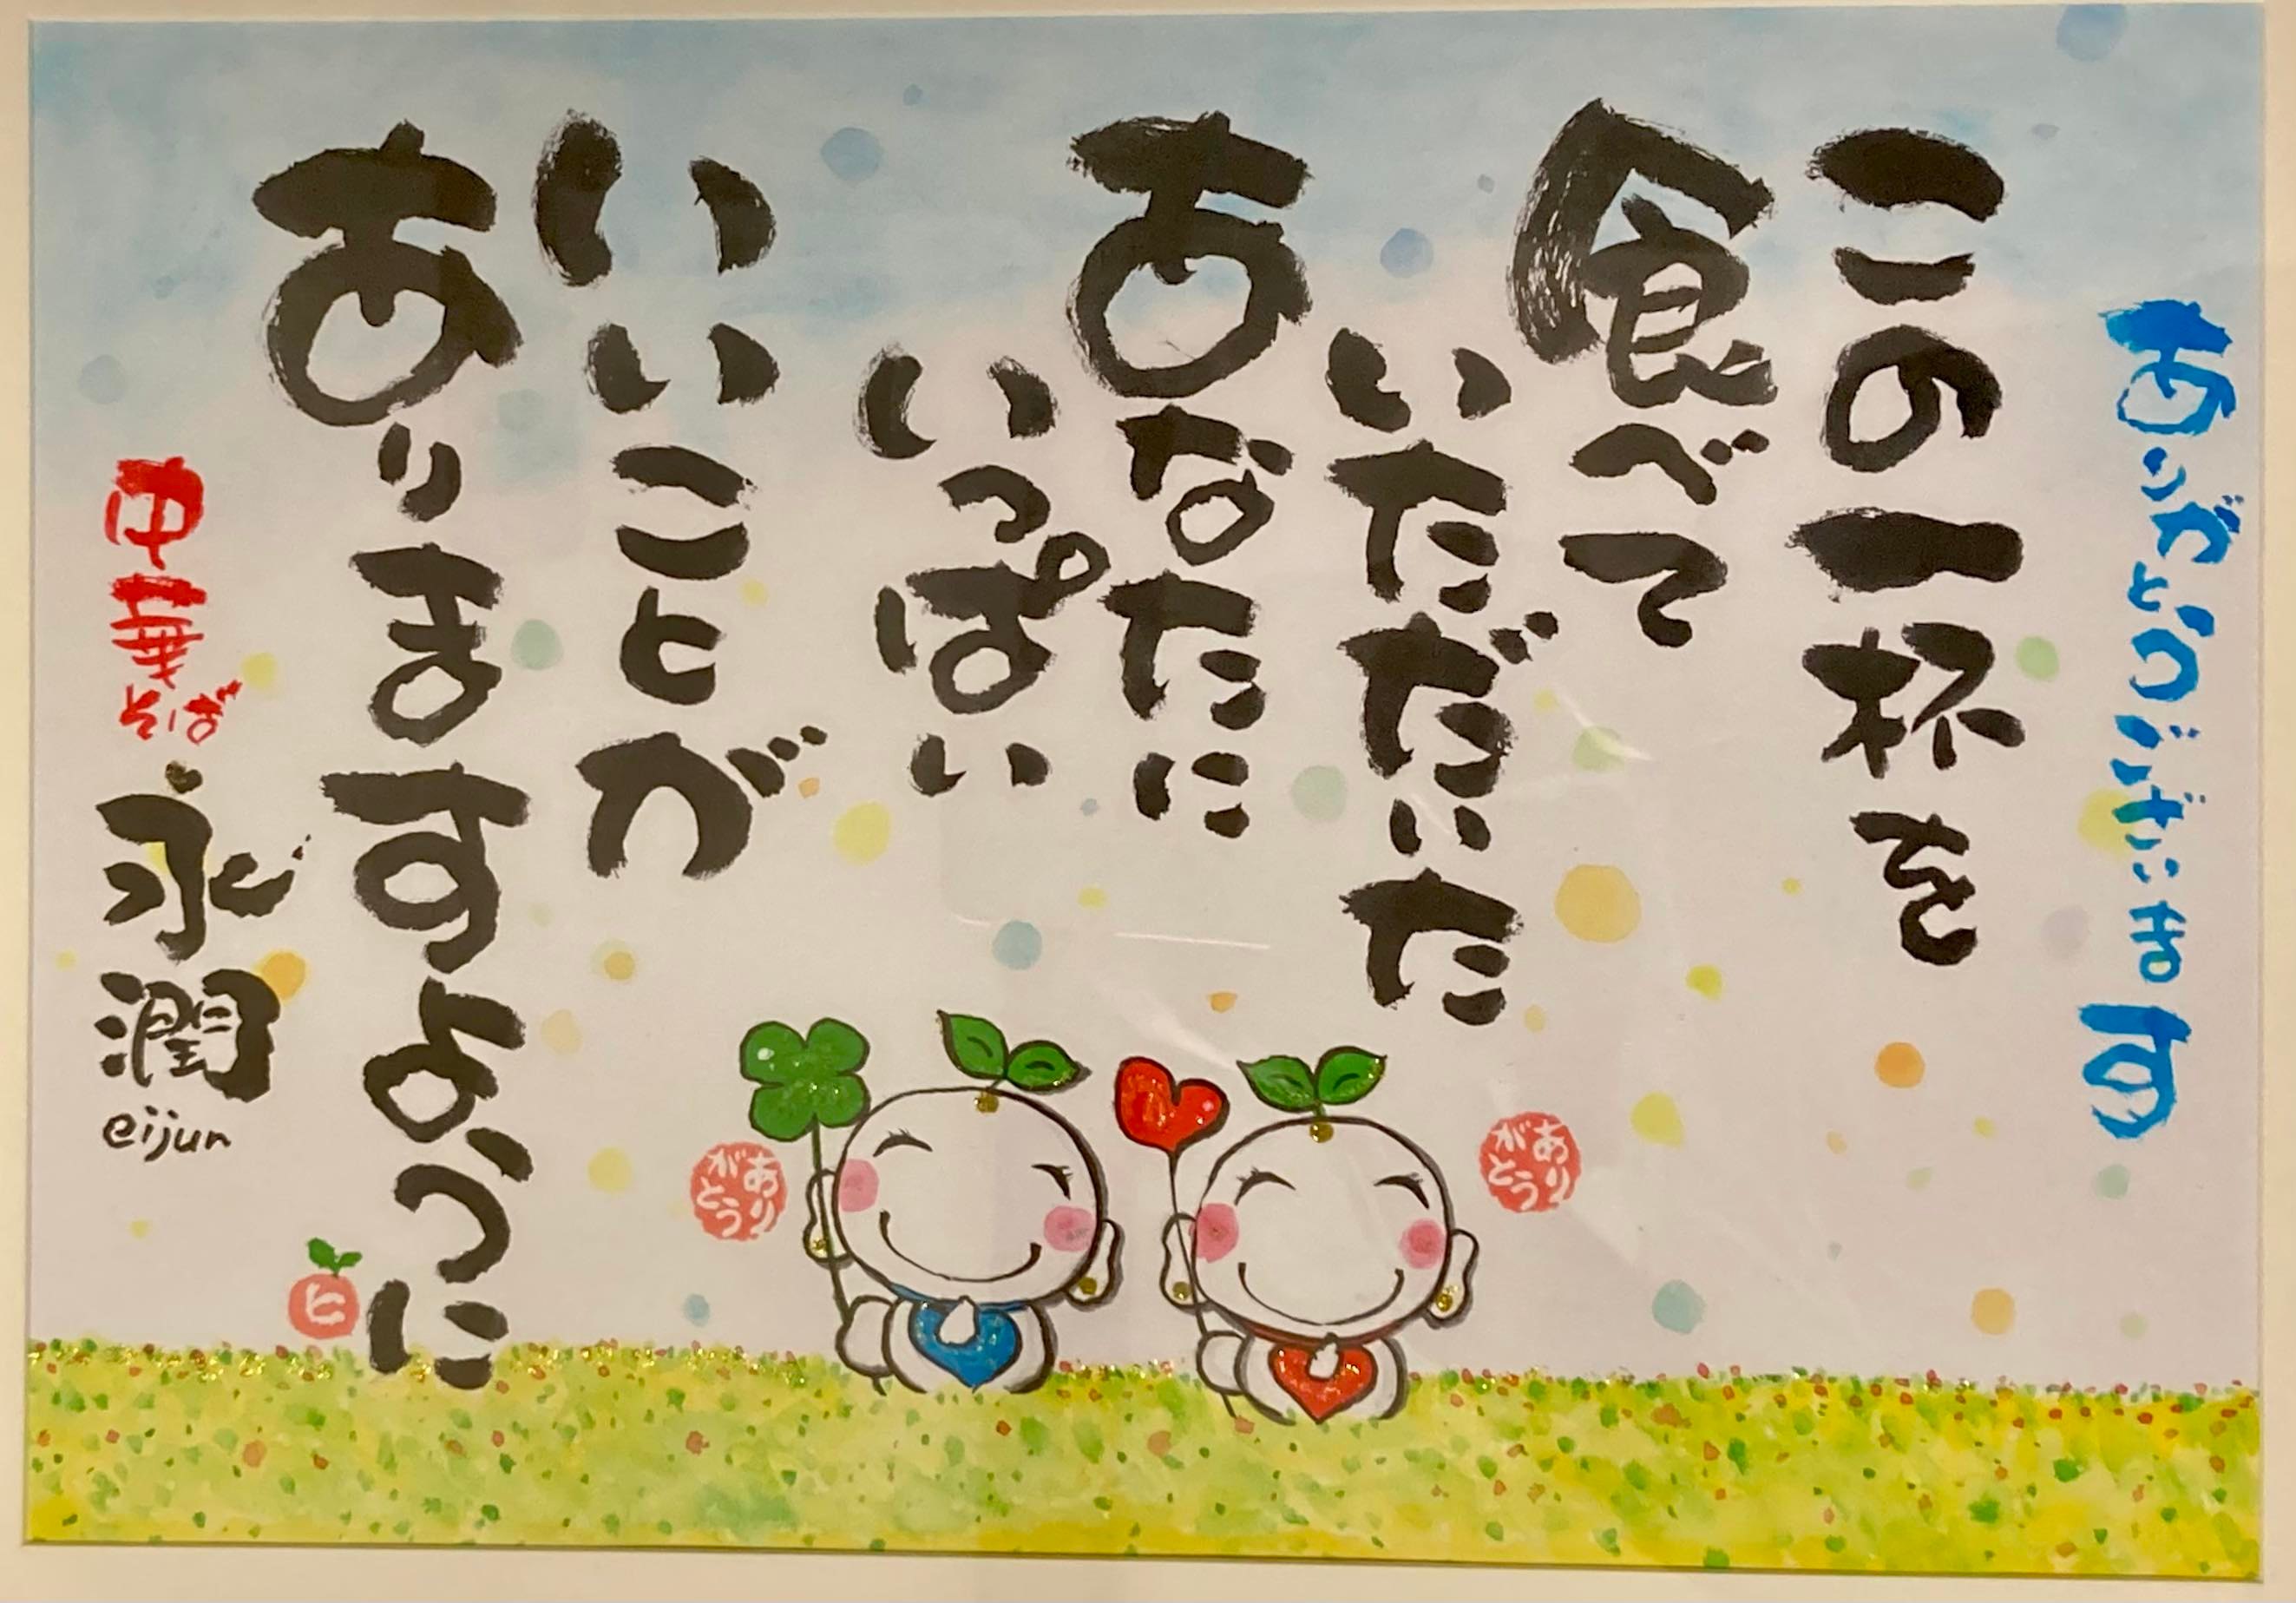 ありがとうございます
この一杯を
食べて
いただいた
あなたに
いっぱい
いいことが
ありますように
中華そば
永潤
eijun
ありがとう
ありがとう
ヒ